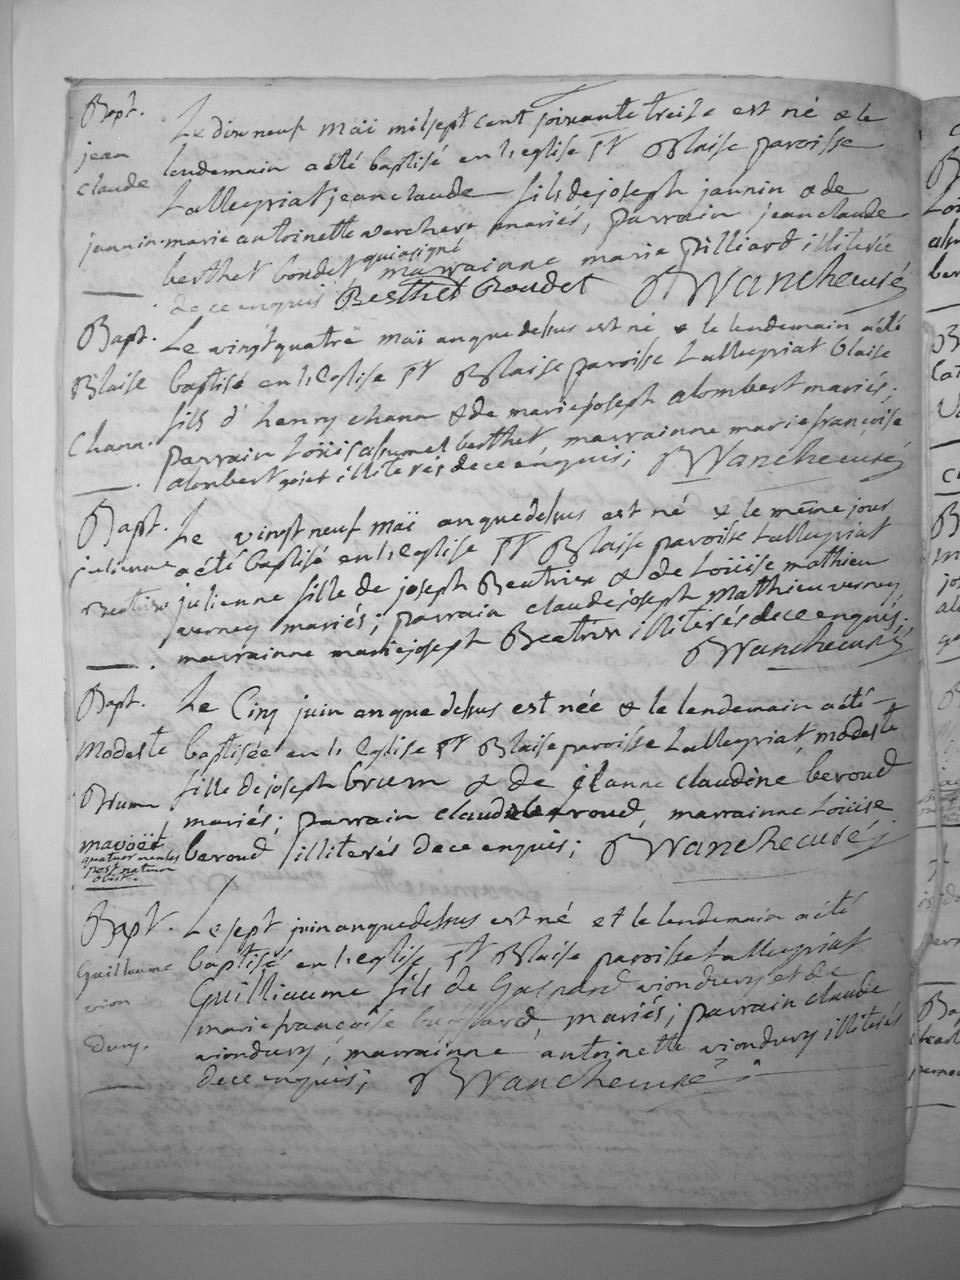 Bapt.
jean
claude
jannin.
Le dix neuf maï mil sept cent soixante treize est né & le
lendemain a été baptisé en l'eglise St Blaise paroisse
Lalleyriat jean claude fils de joseph jannin & de
marie antoinette verchere mariés, parrain jean claude
berthet bondet qui a signé marrainne marie pilliard illiterée
de ce enquis Berthet Boudet Wancheusé
Bapt.
Blaise
Chana.
Le vingt quatre maï an que dessus est né & le lendemain a été
baptisé en l'eglise St Blaise paroisse Lalleyriat blaise
fils d'henry chana & de marie joseph alombert mariés,
parrain Loüis berthet, marrainne marie françoise
alombert illiterés de ce enquis; Wancheusé
Bapt.
julienne
Beatrix
Le vingt neuf maï an que dessus est né & le même jour
a été baptisé en l'eglise St Blaise paroisse Lalleyriat
julienne fille de joseph Beatrix & de Loüise mathieu
verney mariés; parrain claude joseph Mathieu verney
marrainne marie joseph Beatrix illiterés de ce enquis;
Wancheusé
Bapt.
Modeste
Brum
quatuor menses
post natum
obiit.
Le Cinq juin an que dessus est née & le lendemain a été
baptisée en l'Eglise St Blaise paroisse Lalleyriat, modeste
fille de joseph brum & de jeanne claudine beroud
mariés; parrain claude beroud, marrainne Loüise
beroud illiterés de ce enquis; Wancheusé
Bapt.
Guillaume
vion
Dury.
Le sept juin an que dessus est né et le lendemain a été
baptisés en l'eglise St Blaise paroisse Lalleyriat
Guilliaume fils de Gaspard viondury et de
marie françoise mariés; parrain claude
viondury, marrainne antoinette viondury illiterés
de ce enquis; Wancheusé